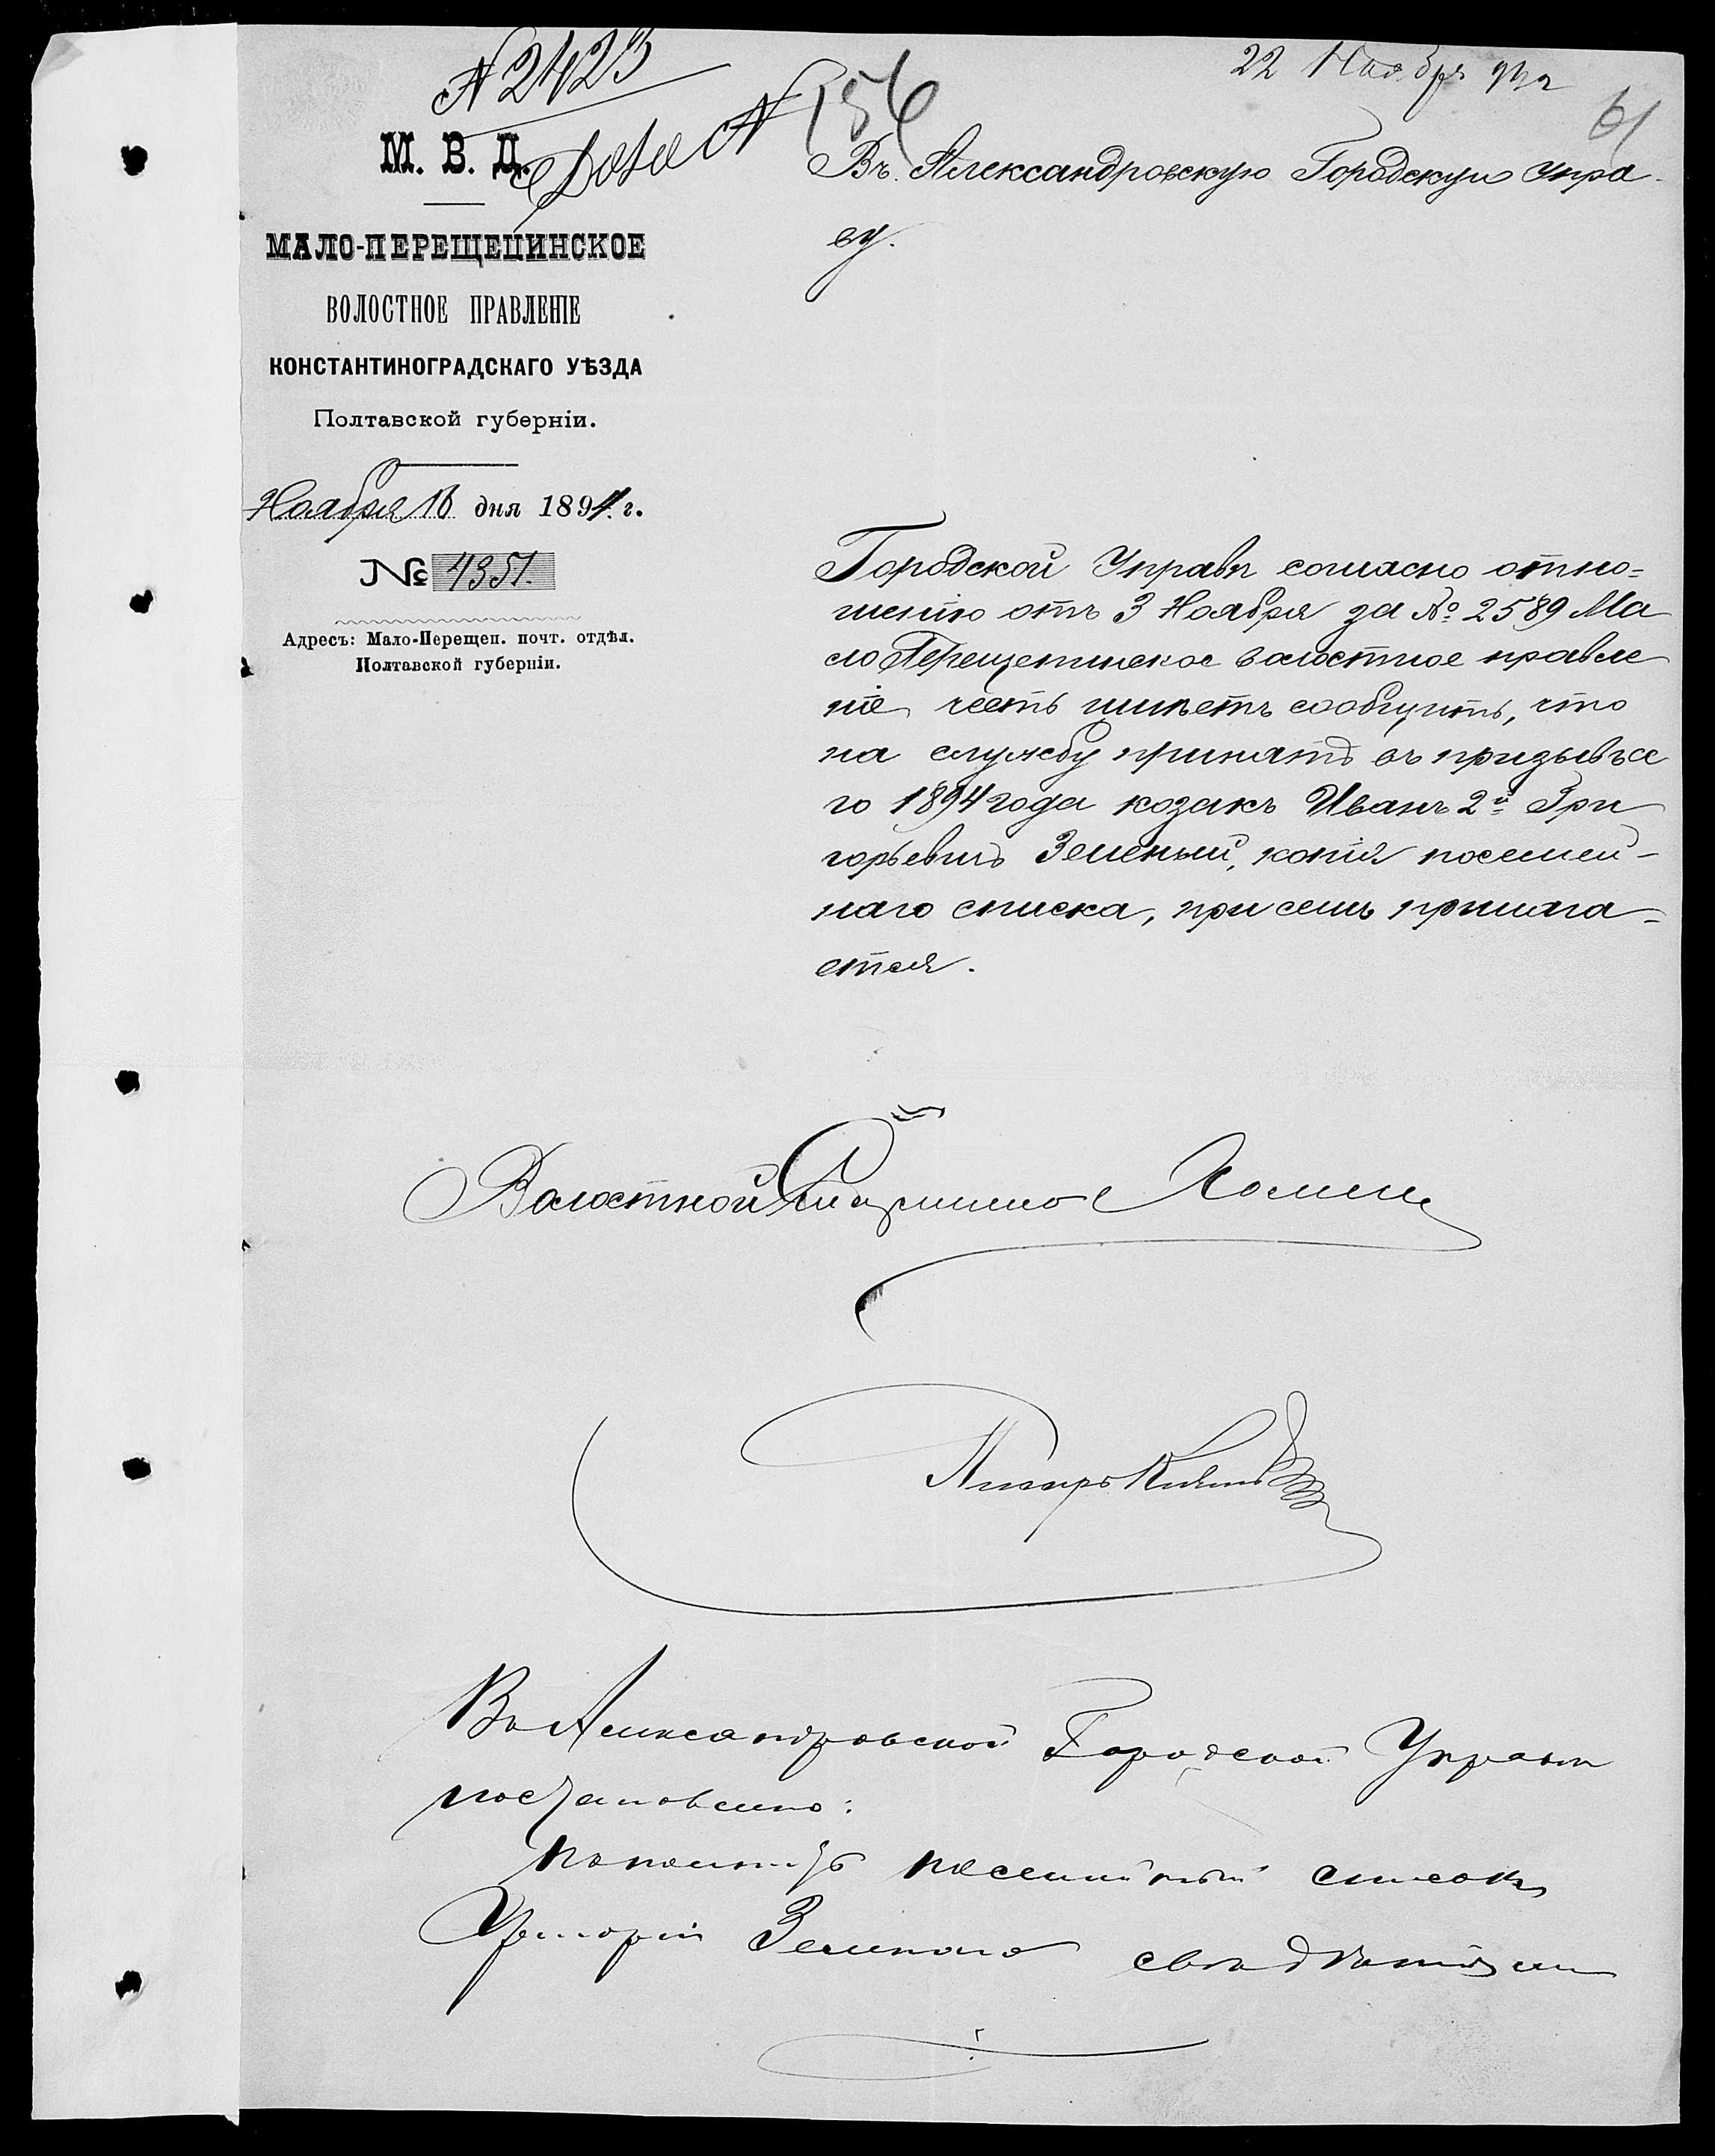 № 2423
22 Ноября 94 г
61
Дело № 156
М. В. Д.
МАЛО-ПЕРЕЩЕПИНСКОЕ
ВОЛОСТНОЕ ПРАВЛЕНІЕ
КОНСТАНТИНОГРАДСКАГО УѢЗДА
Полтавской губерніи.
Ноября 16 дня 1894 г.
№ 4351.
Адресъ: Мало-Перещеп. почт. отдѣл.
Полтавской губерніи.
Въ Александровскую Городскую Упра-
ву.
Городской Управѣ согласно отно=
шенію отъ 3 Ноября за № 2589 Ма
ло Перещепинское волостное правле
ніе честь имѣетъ сообщить, что
на службу принятъ въ призывъ се
го 1894 года козакъ Иванъ 2й Гри
горьевичъ Зеленый, копія посемей-
наго списка, при семъ прилага=
ется.
Волостной Старшина
Писарь
Въ Александровской Городской Управѣ
постановлено:
посемейный списокъ
Григорія Зеленаго